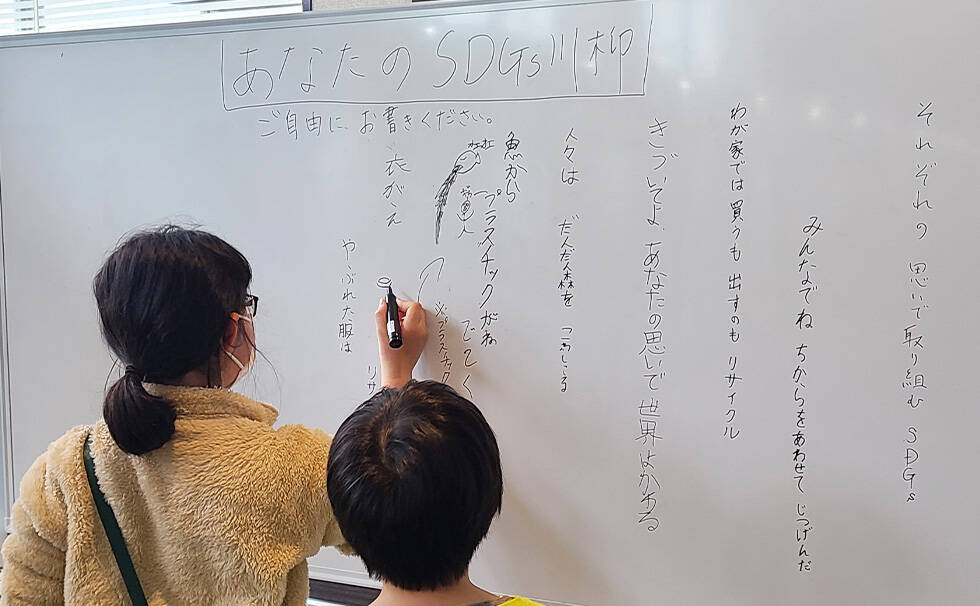 あなたのSDGs川柳
ご自由に、お書きください。
それぞれの 思いで取り組む SDGs
みんなでね ちからをあわせて じつげんだ
わが家では 買うも 出すのも リサイクル
きづいてよ、あなたの思いで 世界はかわる
人々は だんだん森を
魚から プラスッチックがね でてく
※プラスチック
衣がえ
やぶれた服は
リサ